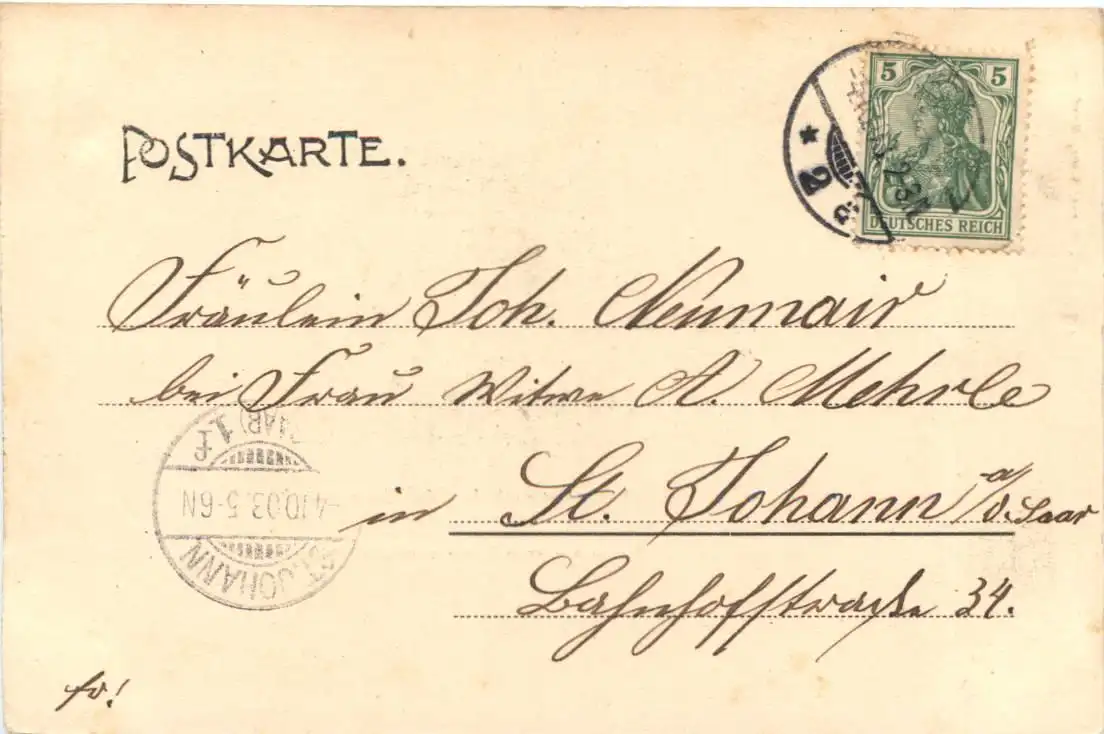 POSTKARTE.
5 5
DEUTSCHES REICH
* 2 d
2-3N
Fräulein Joh. Neumair
bei Frau Witwe A. Mehrle
in St. Johann a/d. Saar
Bahnhofstrasse 34.
ST. JOHANN
-4.10.03.5-6N
(SAAR) 1 f
fr!